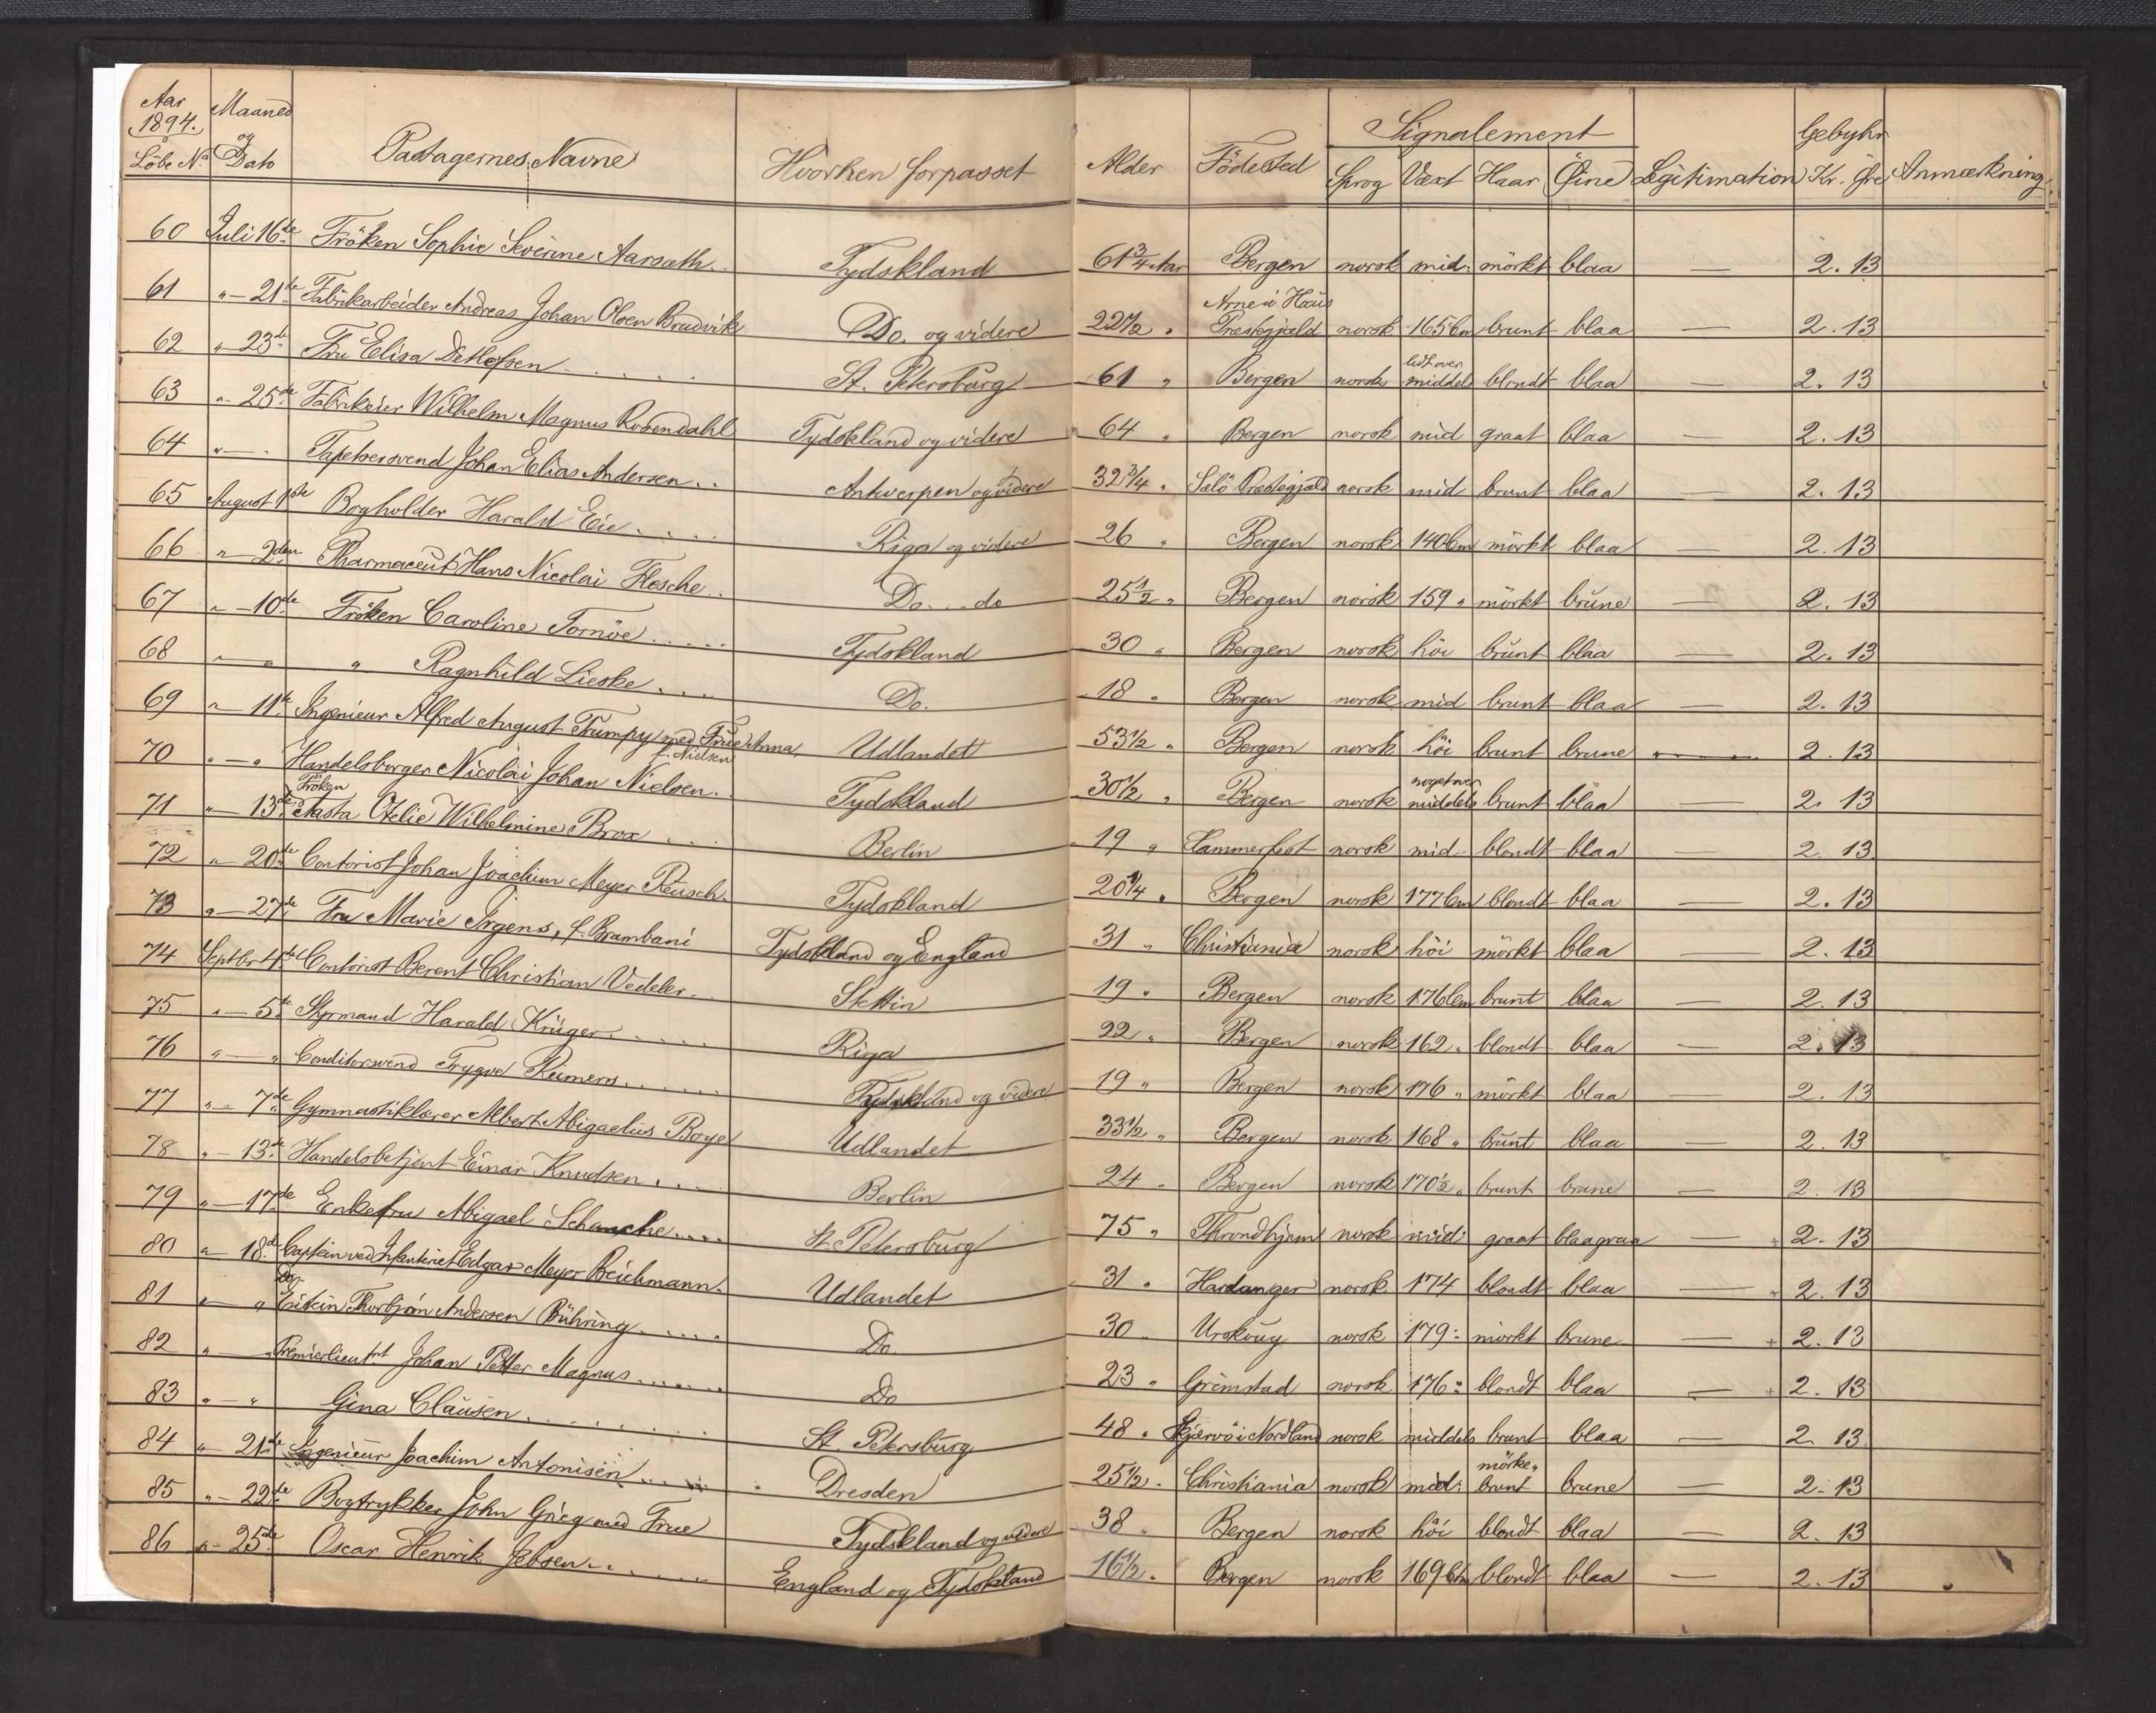 Aar 1894. Löbe No. Maaned og Dato Passagernes Navne Hvorhen forpasset Alder Födested Signalement Sprog Væxt Haar Øine Legitimation Gebyhr Kr. Øre Anmærkning
60 Juli 16de Fröken Sophie Severine Aarsæth. Tydskland 61 3/4 Aar Bergen norsk mid: mörkt blaa — 2. 13
61 " — 21de Fabrikarbeider Andreas Johan Olsen Bradvik Do. og videre 22 1/2 " Arne i Haus Præstegjæld norsk 165 Cm brunt blaa — 2. 13
62 " 23de Fru Elisa Detlefsen . . . . . St. Petersburg 61 " Bergen norsk lidt over middels blondt blaa — 2. 13
63 " 25de Fabrikeier Wilhelm Magnus Rosendahl Tydskland og videre 64 " Bergen norsk mid graat blaa — 2. 13
64 " — " Tapetsersvend Johan Elias Andersen . . Antwerpen og videre 32 3/4 " Selö Præstegjæld norsk mid brunt blaa — 2. 13
65 August 1ste Bogholder Harald Eie . . . . Riga og videre 26 " Bergen norsk 140 Cm mörkt blaa — 2. 13
66 " — 2den Pharmaceut Hans Nicolai Flesche . . Do. . . do 25 1/2 " Bergen norsk 159 " mörkt brune — 2. 13
67 " — 10de Fröken Caroline Tornöe . . . . . Tydskland 30 " Bergen norsk höi brunt blaa — 2. 13
68 " " " Ragnhild Lieske . . . . Do. 18 " Bergen norsk mid brunt blaa — 2. 13
69 " — 11te Ingenieur Alfred August Trumpy med Frue Anna f. Nielsen Udlandet 53 1/2 " Bergen norsk höi brunt brune — 2. 13
70 " — " Handelsborger Nicolai Johan Nielsen. . Tydskland 30 1/2 " Bergen norsk noget over middels brunt blaa 2. 13
71 " — 13de Fröken Aasta Otelie Wilhelmine Brox . . . Berlin 19 " Hammerfest norsk mid blondt blaa — 2. 13
72 " 20de Contorist Johan Joachim Meyer Reusch. Tydskland 20 1/4 " Bergen norsk 177 Cm blondt blaa — 2. 13
73 " — 27de Fru Marie Irgens, f. Brambani Tydskland og England 31 " Christiania norsk höi mörkt blaa — 2. 13
74 Septbr 4de Contorist Berent Christian Vedeler . . Stettin 19 " Bergen norsk 176 Cm brunt blaa — 2. 13
75 " — 5te Styrmand Harald Krüger . . . . . Riga 22 " Bergen norsk 162 " blondt blaa — 2. 13
76 " — " Conditorsvend Trygve Reimers . . . . . Tydskland og videre 19 " Bergen norsk 176 " mörkt blaa — 2. 13
77 " — 7de Gymnastiklærer Albert Abigaelius Boye Udlandet 33 1/2 " Bergen norsk 168 " brunt blaa — 2. 13
78 " — 13de Handelsbetjent Einar Knudsen . . . Berlin 24 " Bergen norsk 170 1/2 " brunt brune — 2. 13
79 " — 17de Enkefru Abigael Schanche . . . . St. Petersburg 75 " Throndhjem norsk mid: graat blaagraa — 2. 13
80 " 18de Captein ved Infanteriet Edgar Meyer Beichmann. Udlandet 31 " Hardanger norsk 174 blondt blaa — 2. 13
81 " — " Do. Thorbjörn Andersen Bühring . . . . . Do. 30 " Urskoug norsk 179: mörkt brune — 2. 13
82 " — " Premierlieutnt Johan Petter Magnus . . . . . . Do 23 " Grimstad norsk 176: blondt blaa — 2. 13
83 " — " Gina Clausen . . . . . . . . St. Petersburg 48 " Skjærvö i Nordland norsk middels brunt blaa — 2. 13
84 " 21de Ingenieur Joachim Antonisen . . . . Dresden 25 1/2 " Christiania norsk mid: mörke" brunt brune — 2. 13
85 " — 22de Bogtrykker John Grieg med Frue Tydskland og videre 38 " Bergen norsk höi blondt blaa — 2. 13
86 " — 25de Oscar Henrik Jebsen . . . . . . England og Tydskland 16 1/2 " Bergen norsk 169 Cm blondt blaa — 2. 13